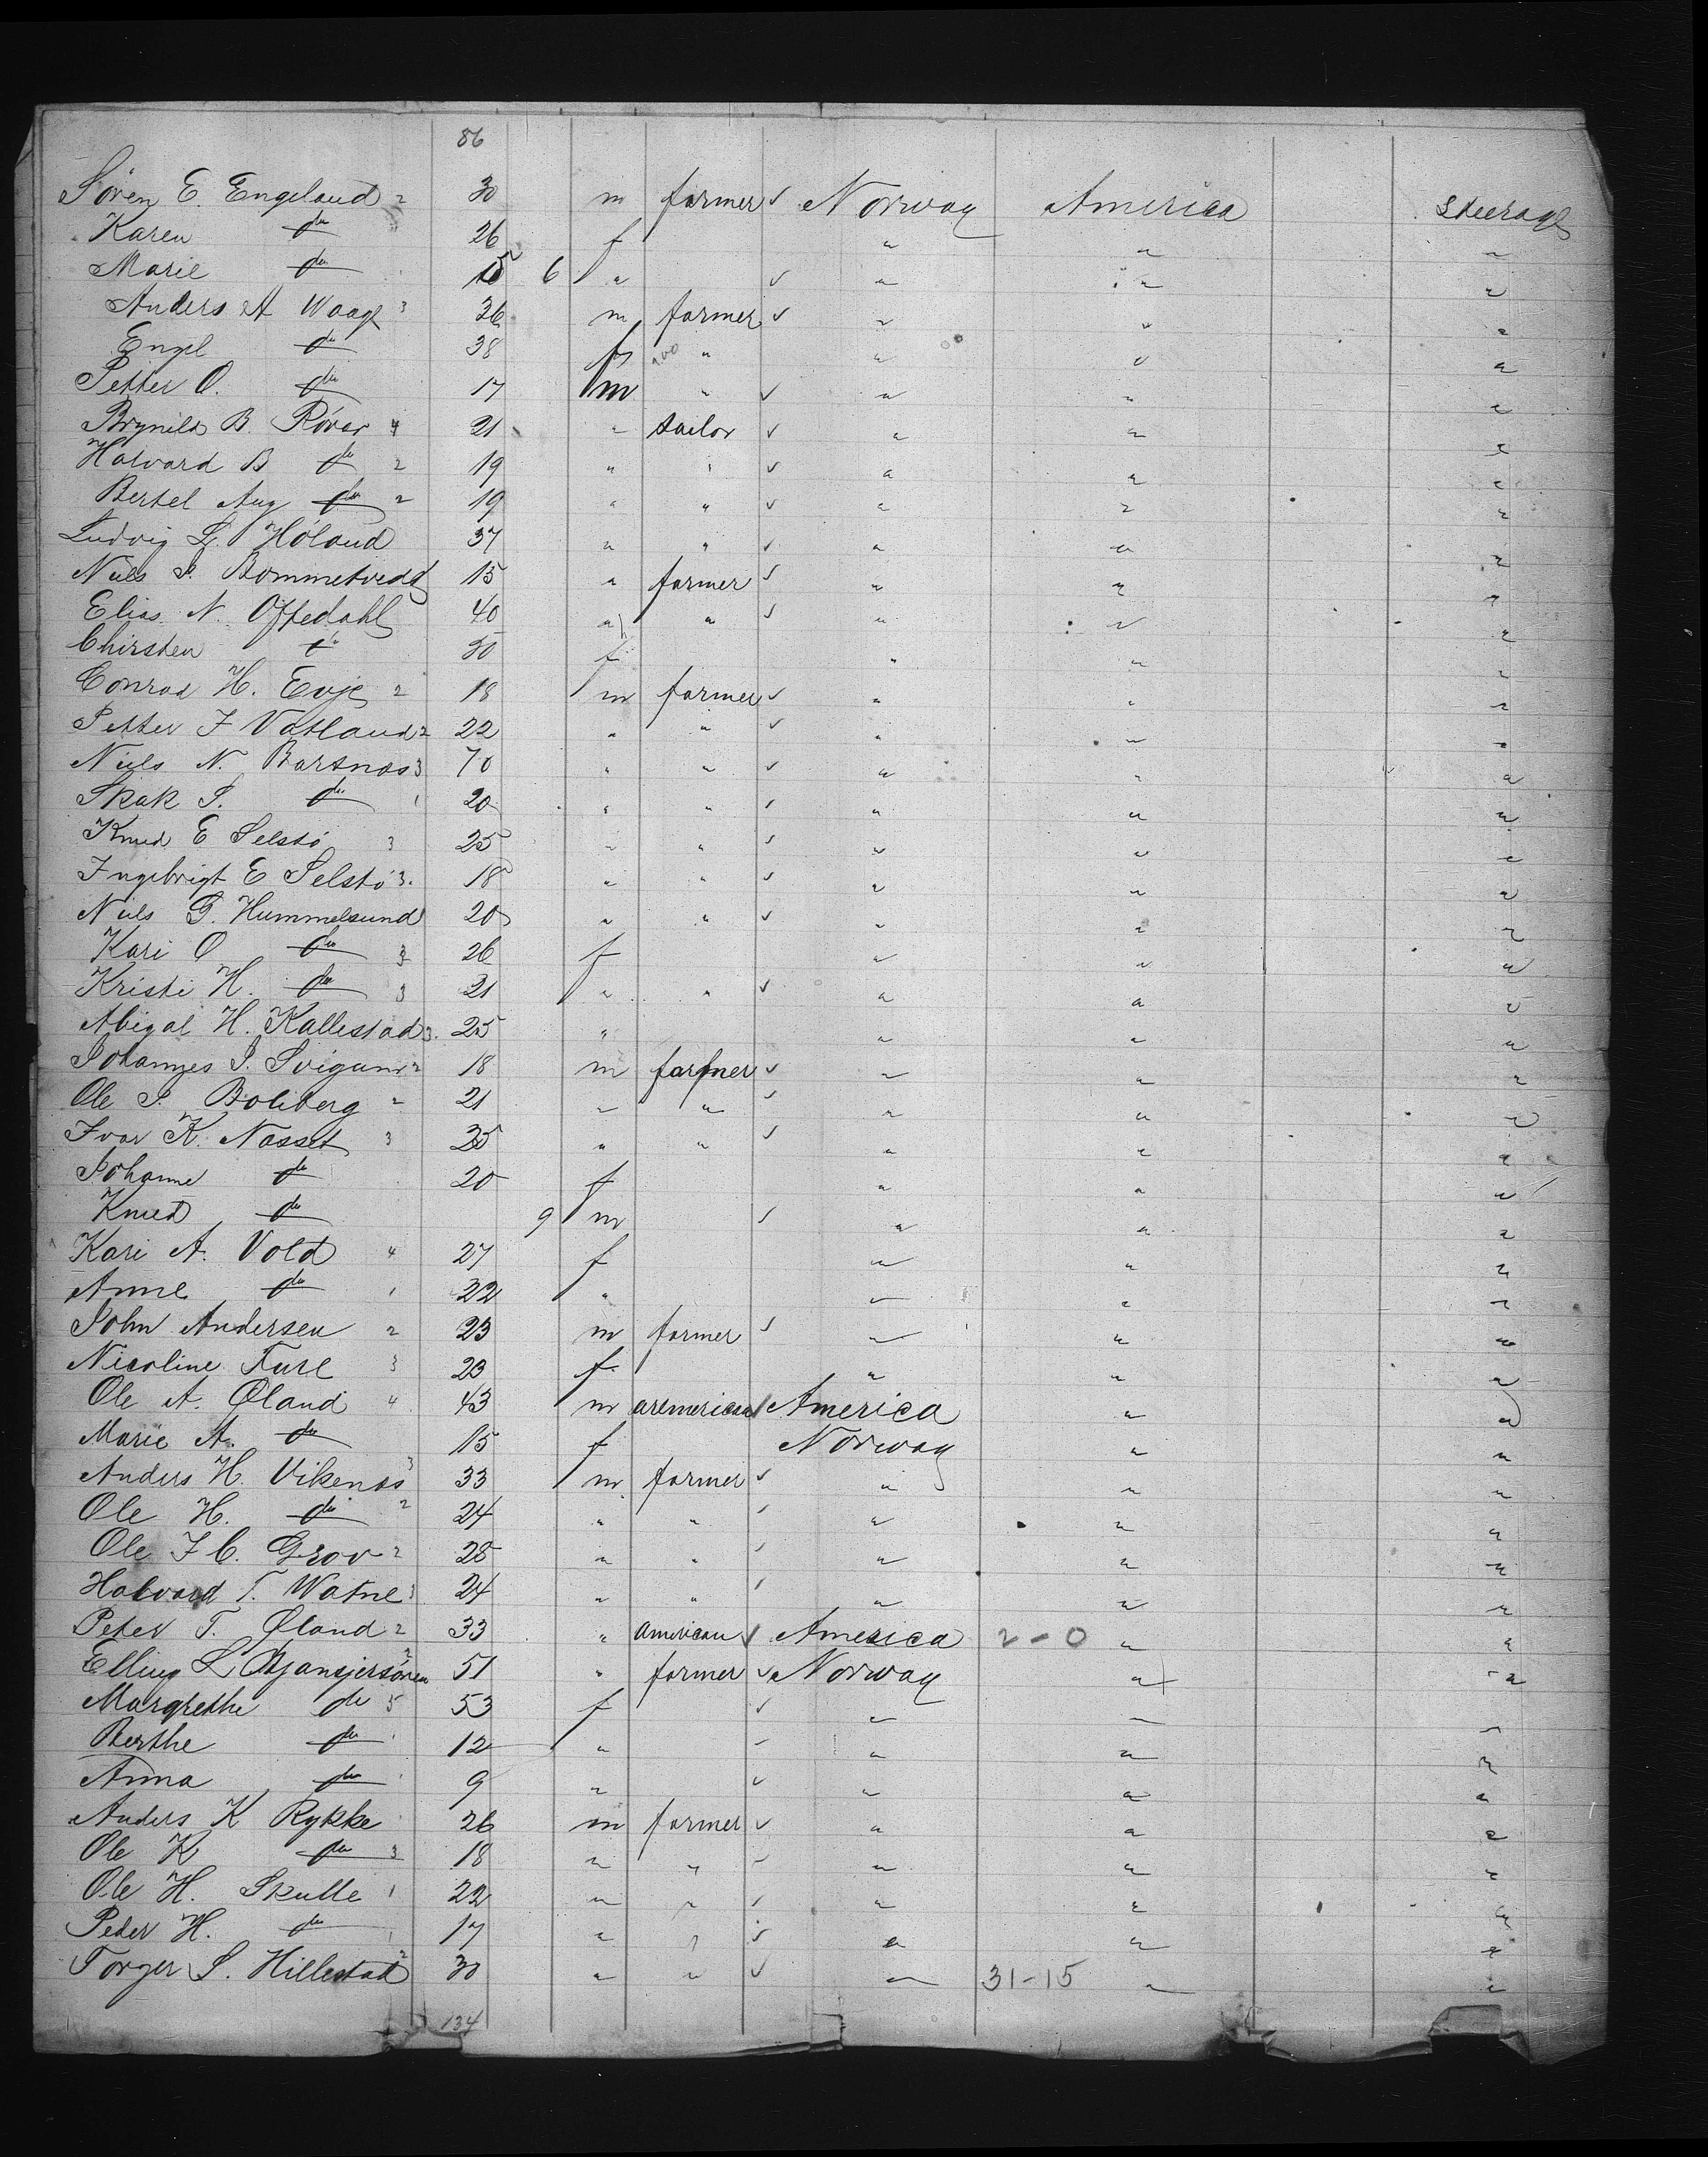 86
Sören E. Engeland 2 30 m farmer ✓ Norway America Steerage
Karen do 26 f " " "
Marie do 15 6 " ✓ " " "
Anders A Waage 3 36 m farmer ✓ " " "
Engel do 38 f " " " "
Petter O. do 17 m " ✓ " " "
Brynild B. Röver 4 21 " sailor ✓ " " "
Halvard B do 2 19 " " ✓ " " "
Bertel Aug do 2 19 " " ✓ " " "
Ludvig L. Höland 37 " " ✓ " " "
Niels S. Bommetvedt 15 " farmer ✓ " " "
Elias N. Oftedahl 40 " " ✓ " " "
Chirsten do 30 f " " "
Conrad H. Evje 2 18 m farmer ✓ " " "
Petter J Vatland 2 22 " " ✓ " " "
Niels N. Barsnas 3 70 " " ✓ " " "
Skak S. do 1 20 " " ✓ " " "
Knud E Selstö 3 25 " " ✓ " " "
Ingebrigt E Selstö 3. 18 " " ✓ " " "
Niels G. Hummelsund 20 " " ✓ " " "
Kari O do 3 26 f " " "
Kristi H. do 3 21 " " ✓ " " "
Abigal H. Kallestad 3. 25 " " " "
Johannes S. Svigum 2 18 m farmer ✓ " " "
Ole S. Boliberg 2 21 " " ✓ " " "
Ivar K. Nasset 3 35 " " ✓ " " "
Johanne do 20 f " " "
Knud do 9 m ✓ " " "
Kari A. Vold 4 27 f " " "
Anne do 1 22 " " " "
John Andersen 2 23 m farmer ✓ " " "
Nicoline Fure 3 23 f " " "
Ole A. Øland 4 43 m aremerican ✓ America " "
Marie A. do 15 f Norway " "
Anders H. Vikenas 3 33 m farmer ✓ " " "
Ole H. do 2 24 " " ✓ " " "
Ole J C. Grov 2 28 " " ✓ " " "
Halvard T. Watne 3 24 " " ✓ " " "
Peter T. Øland 2 33 " american ✓ America 2-0 " "
Elling L 51 " farmer ✓ Norway " "
Margrethe do 5 53 f ✓ " " "
Berthe do 1 12 " " " "
Anna do 9 " ✓ " " "
Anders K Rykke 26 m farmer ✓ " " "
Ole K do 3 18 " " ✓ " " "
Ole H. Skulle 1 22 " " ✓ " " "
Peder H. do 1 17 " " ✓ " " "
Torger S. Hillestad 2 30 " " ✓ " 31-15 " "
134